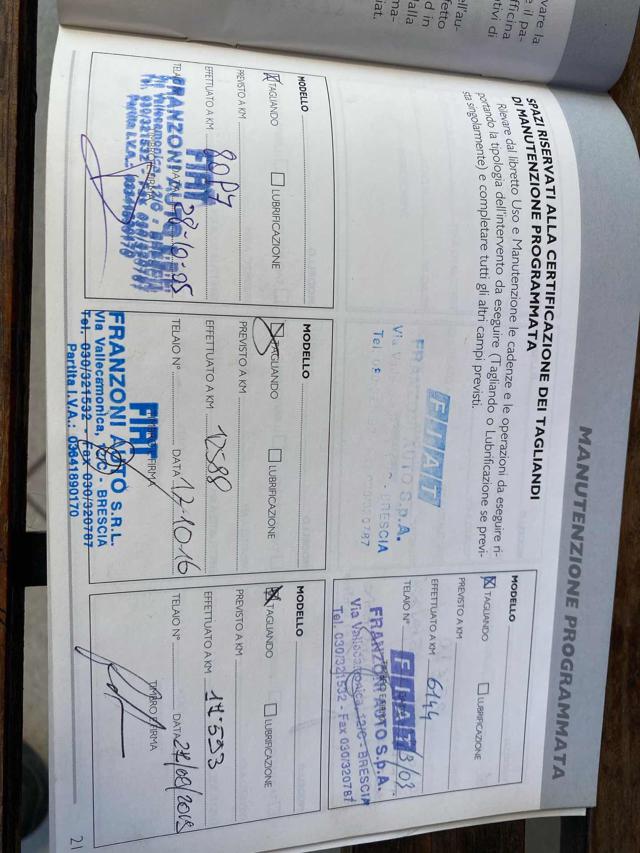 MANUTENZIONE PROGRAMMATA
SPAZI RISERVATI ALLA CERTIFICAZIONE DEI TAGLIANDI
DI MANUTENZIONE PROGRAMMATA
Rilevare dal libretto Uso e Manutenzione le cadenze e le operazioni da eseguire ri-
portando la tipologia dell'intervento da eseguire (Tagliando o Lubrificazione se previ-
sta singolarmente) e completare tutti gli altri campi previsti.
MODELLO
TAGLIANDO LUBRIFICAZIONE
PREVISTO A KM
EFFETTUATO A KM 6144
TELAIO N° 3/03
FIAT
FRANZONI AUTO S.p.A.
Via Vallecamonica, 12/C - BRESCIA
Tel. 030/321532 - Fax 030/320787
MODELLO
TAGLIANDO LUBRIFICAZIONE
PREVISTO A KM
EFFETTUATO A KM
DATA 28-10-05
FIAT
FRANZONI AUTO
Vallecamonica, 12/C - BRESCIA
MODELLO
TAGLIANDO LUBRIFICAZIONE
PREVISTO A KM
EFFETTUATO A KM 12588
TELAIO N° DATA 17-10-16
TIMBRO E FIRMA
FIAT
FRANZONI AUTO S.R.L.
Via Vallecamonica, 12/C - BRESCIA
Tel. 030/321532 - Fax 030/320787
Partita I.V.A.: 03641890170
MODELLO
TAGLIANDO LUBRIFICAZIONE
PREVISTO A KM
EFFETTUATO A KM 14.533
TELAIO N° DATA 24/09/2019
TIMBRO E FIRMA
21